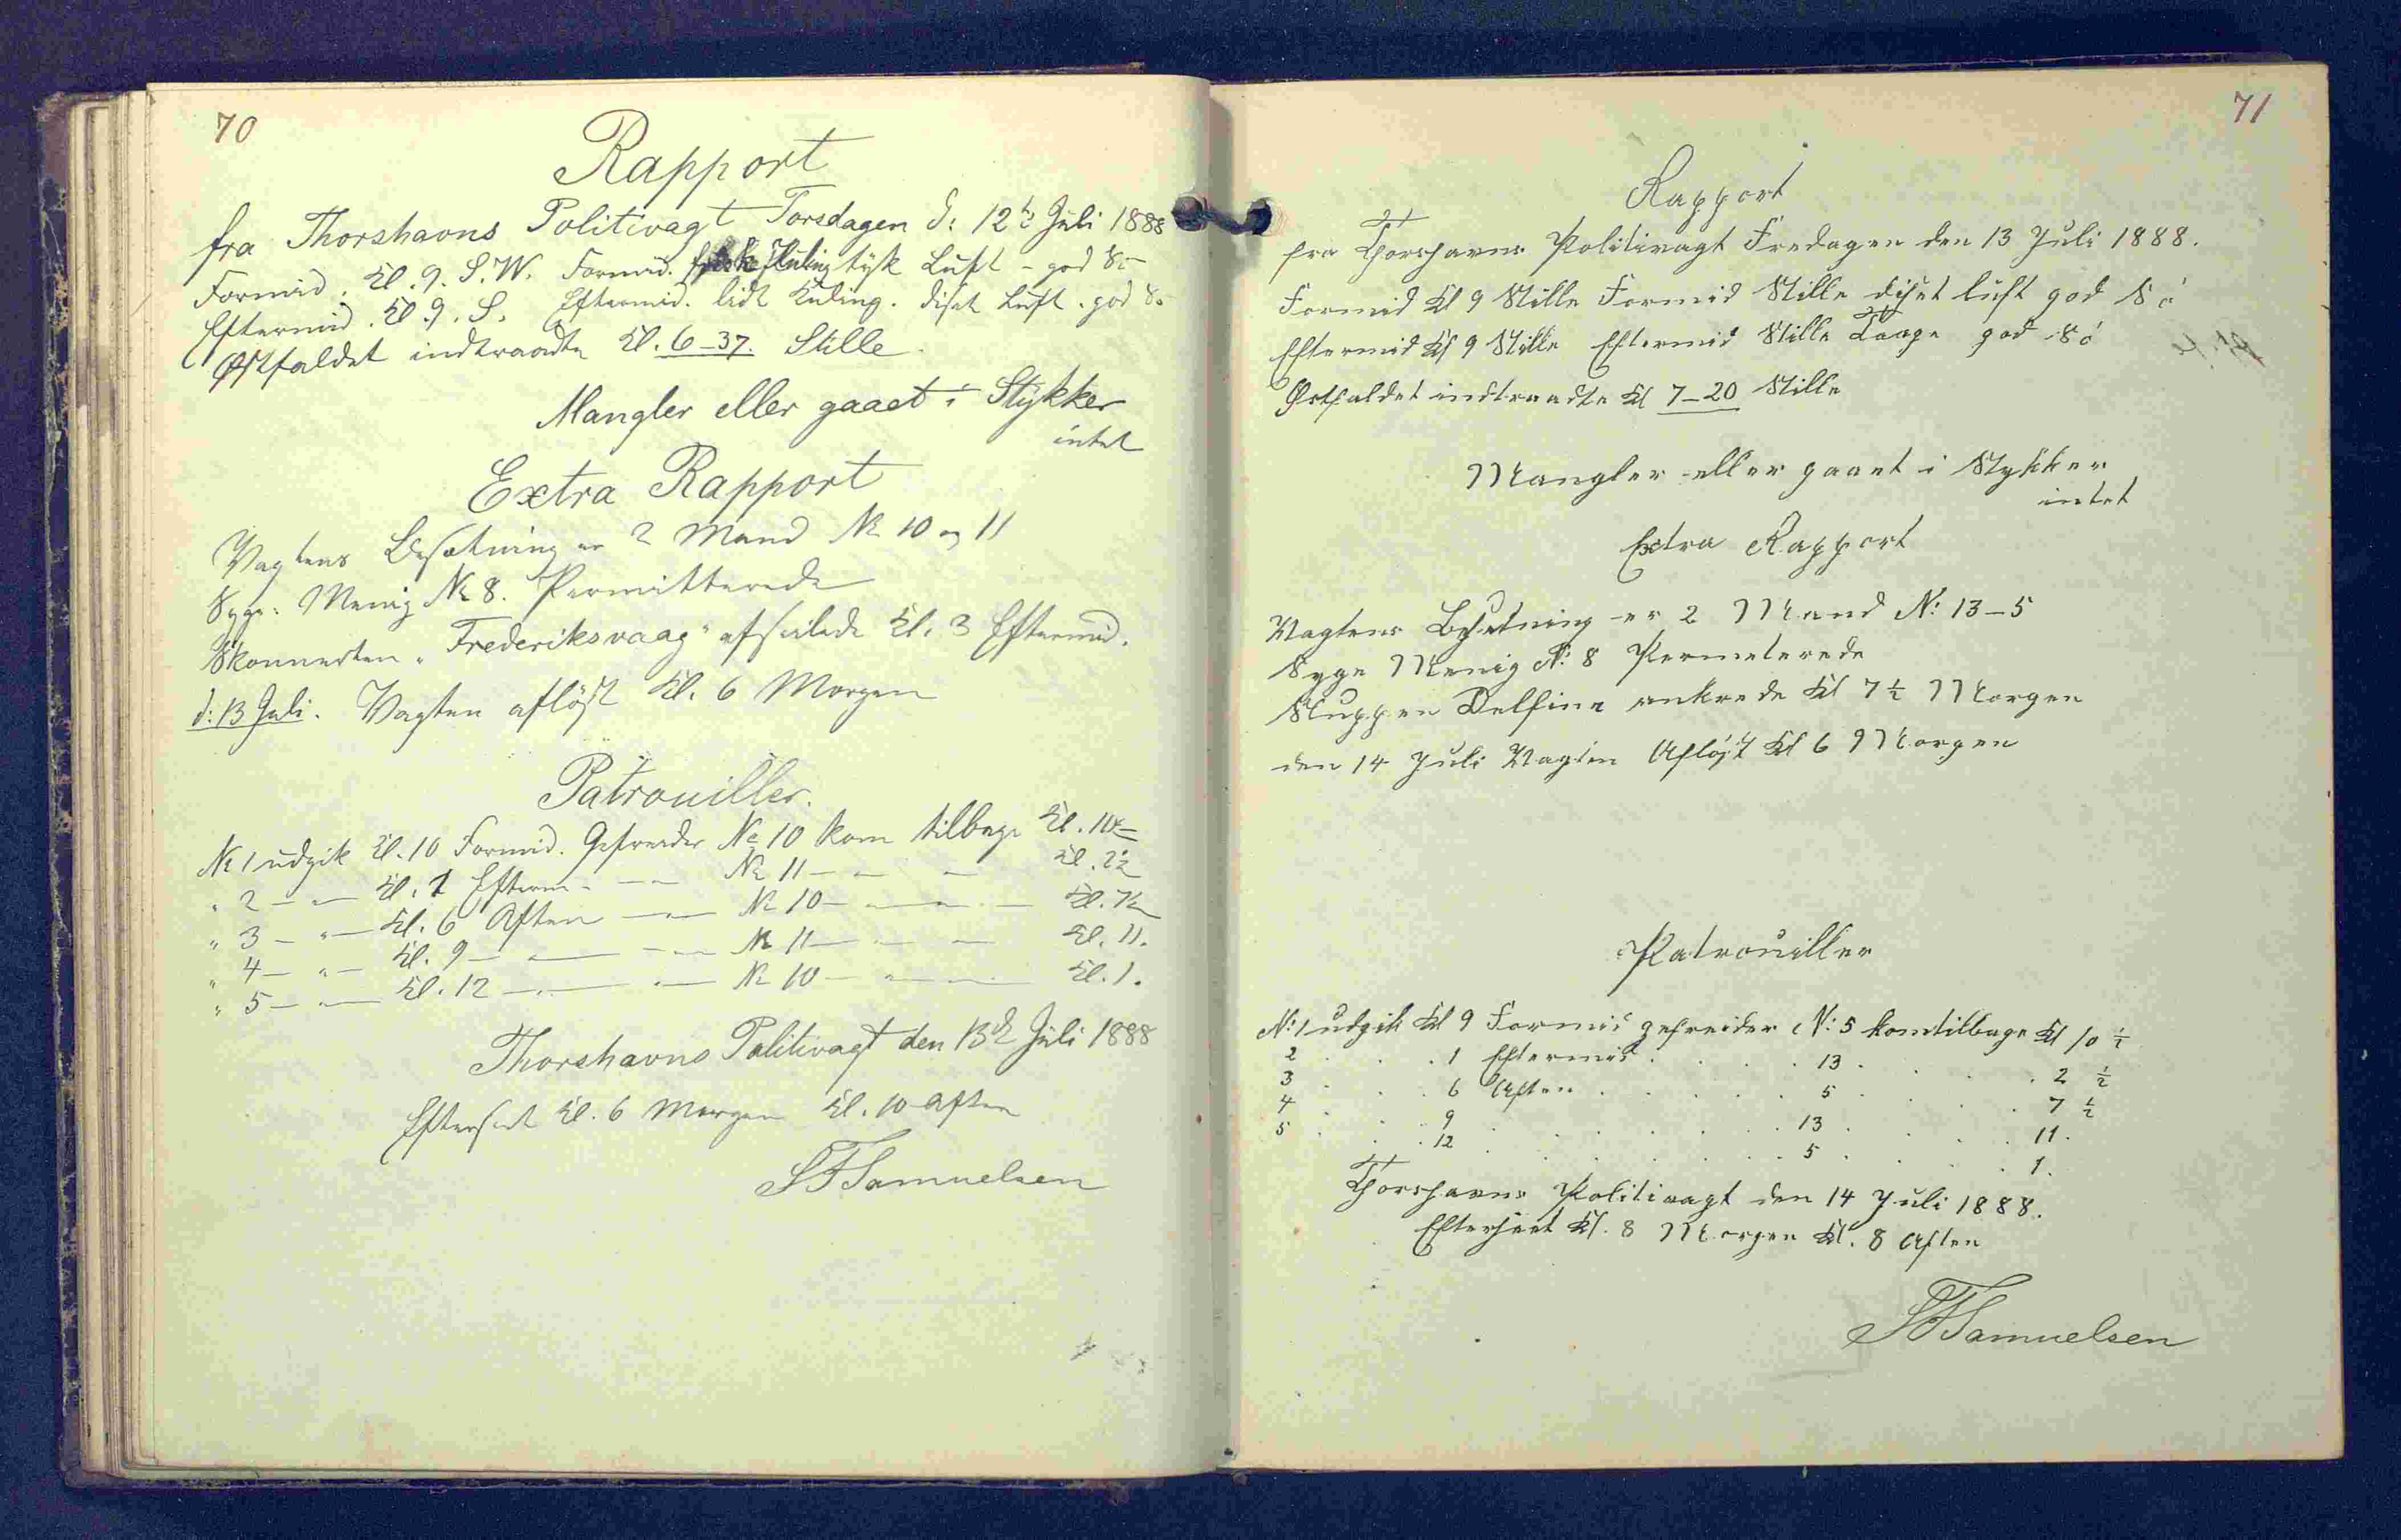 70
Rapport
fra Thorshavns Politivagt Torsdagen d: 12te Juli 1888
Formid. Kl. 9. S.W. Formid. frisk Kuling tyk Luft - god Sö
Eftermid. Kl. 9. S. Eftermid. lidt Kuling. diset Luft. god Sö
Östfaldet indtraadte Kl. 6-37. Stille
Mangler eller gaaet i Stykker
intet
Extra Rapport
Vagtens Besætning er 2 Mand No 10 og 11
Syge: Menig No 8. Permitterede
Skonnerten "Frederiksvaag" afseilede Kl. 3 Eftermid.
d: 13 Juli. Vagten aflöst Kl. 6 Morgen
Patrouiller.
No 1 udgik Kl. 10 Formid. Gefreider No 10 kom tilbage Kl.
" 2 - " - Kl. 1 Efterm - " - No 11 - " - Kl. 2½
" 3 - " - Kl. 6 Aften - " - No 10 - " - Kl. 7½
" 4 - " - Kl. 9 - " - No 11 - " - Kl. 11.
" 5 - " - Kl. 12 - " - No 10 - " - Kl. 1.
Thorshavns Politivagt den 13de Juli 1888
Efterseet Kl. 6 Morgen Kl. 10 Aften
SFSamuelsen
71
Rapport
fra Thorshavns Politivagt Fredagen den 13 Juli 1888.
Formid Kl 9 Stille Formid Stille diset luft god Sö
Eftermid Kl 9 Stille Eftermid Stille Taage god Sö
Östfaldet indtraadte Kl 7-20 Stille
Mangler eller gaaet i Stykker
intet
Extra Rapport
Vagtens Besetning er 2 Mand N: 13-5
Syge Menig N: 8 Permeterede
Sluppen Delfine ankrede Kl 7½ Morgen
den 14 Juli Vagten Aflöst Kl 6 Morgen
Patrouiller
N: 1 udgik Kl 9 Formid gefreider N: 5 kom tilbage Kl 10 ½
2 . . . 1 Eftermid . . . 13 . . . 2 ½
3 . . . 6 Aften . . . 5 . . . 7 ½
4 . . . 9 . . . 13 . . . 11.
5 . . . 12 . . . 5 . . . 1.
Thorshavns Politivagt den 14 Juli 1888.
Efterseet Kl. 8 Morgen Kl. 8 Aften
SFSamuelsen